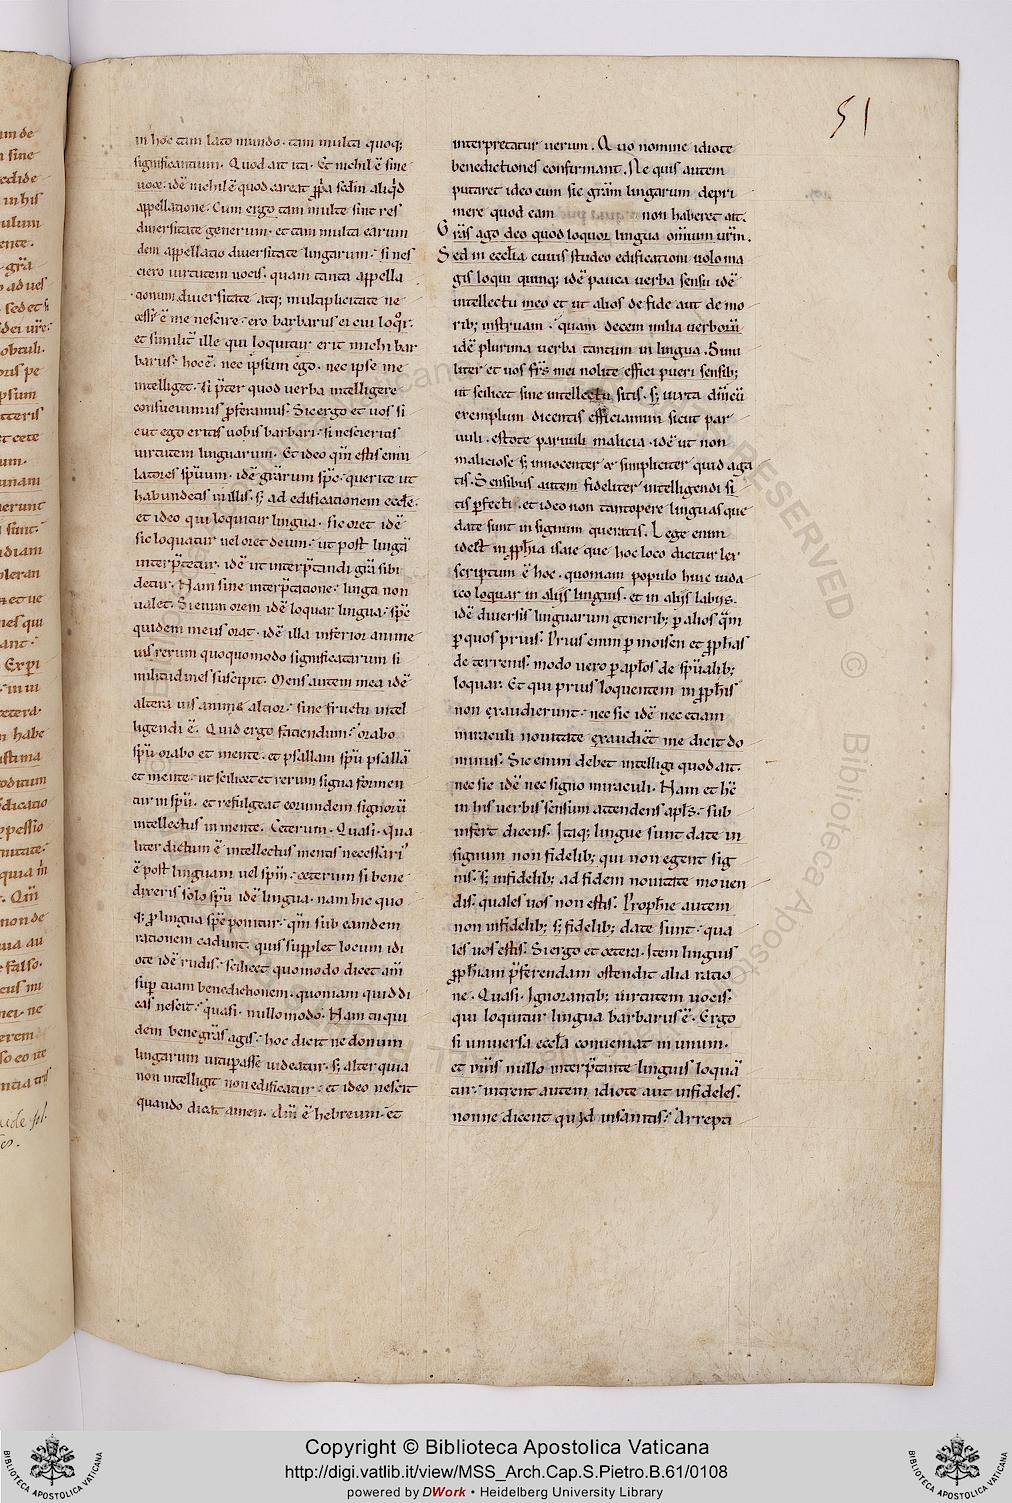 51
in hoc tam lato mundo · tam multa quoq;
significantium. Quod ait ita. Et nichil ē sine
uoce · idē nichil ē quod careat ꝓp̃a
appellatione. Cum ergo tam multe sint res
diuersitate generum · et tam multa earum
dem appellatio diuersitate lingarum · si nes
ciero uirtutem uocis · quam tanta appella
tionum diuersitate atq; multiplicitate ne
me nescire · ero barbarus ei cui loq̃r.
et similit̃ ille qui loquitur erit michi bar
barus · hoc ē · nec ip̃sum ego · nec ipse me
intelliget · si p̃ter quod verba intelligere
consueuimus ꝓferamus. Sic ergo et uos si
cut ego eritis uobis barbari · si nescieritis
uirtutem linguarum. Et ideo qm̃ estis emu
latores sp̃uum · idē gr̃arum sp̃c · querite ut
habundetis in illis · s; ad edificationem eccl̃e.
et ideo qui loquitur lingua · sic oret idē
sic loquatur uel oret deum · ut post lingã
interp̃tetur · idē ut interp̃tandi gr̃a sibi
detur. Nam sine interp̃tatione · linga non
ualet. Si enim orem idē loquar lingua · sp̃c
quidem meus orat · idē illa inferior anime
uis rerum quoquomodo significatarum si
militudines suscipit. Mens autem mea idē
altera uis anime altior · sine fructu intel
ligendi ē. Quid ergo faciendum · orabo
sp̃u orabo et mente · et psallam sp̃u psallã
et mente · ut scilicet et rerum signa formen
tur in sp̃u · et refulgeat eorumdem signorũ
intellectus in mente. Ceterum. Quasi. Qua
liter dictum ē intellectus mentis necessari'
ē post linguam uel sp̃m · ceterum si bene
dixeris solo sp̃u idē lingua · nam hic quo
q; ꝓ lingua sp̃c ponitur · qm̃ sub eandem
rationem cadunt · quis supplet locum idi
ote idē rudis · scilicet quomodo dicet am̃
sup̃ tuam benedictionem · quoniam quid di
cas nescit · quasi · nullo modo. Nam tu qui
dem bene gr̃as agis · hoc dicit ne donum
lingarum uitupasse uideatur · s; alter quia
non intelligit non edificatur · et ideo nescit
quando dicat amen · am̃ ē hebreum · et
interpretatur uerum. Quo nomine idiote
benedictiones confirmant. Ne quis autem
putaret ideo eum sic gr̃am lingarum depri
mere quod eam non haberet ait.
Gr̃as ago deo quod loquor lingua omnium ur̃m.
Sed in eccl̃ia cuius studeo edificationi uolo ma
gis loqui quinq; idē pauca uerba sensu idē
intellectu meo et ut alios de fide aut de mo
rib; instruam · quam decem milia uerborũ
idē plurima uerba tantum in lingua. Simi
liter et uos fr̃s mei nolite effici pueri sensib;
ut scilicet sine intellectu sitis · s; iuxta dn̄icũ
exemplum dicentis efficiamini sicut par
uuli · estote paruuli malicia · idē ut non
maliciose s; innocenter & simpliciter quid aga
tis. Sensibus autem fideliter intelligendi si
tis ꝑfecti · et ideo non tantopere linguas que
date sunt in signum queratis. Lege enim
idest in ꝓph̃ia isaie que hoc loco dicitur lex
scriptum ē hoc · quoniam populo huic iuda
ico loquar in alijs linguis · et in alijs labijs.
idē diuersis linguarum generib; ꝑ alios q̃m
ꝑ quos prius. Prius enim ꝑ moisen et ꝓph̃as
de terrenis · modo uero ꝑ apl̃os de sp̃ualib;
loquar. Et qui prius loquentem in ꝓph̃is
non exaudierunt · nec sic idē nec etiam
miraculi nouitate exaudiẽt me dicit do
minus. Sic enim debet intelligi quod ait.
nec sic idē nec signo miraculi. Nam et hc̃
in his uerbis sensum attendens apl̃s · sub
infert dicens. Itaq; lingue sunt date in
signum non fidelib; qui non egent sig
nis · s; infidelib; ad fidem nouitate mouen
dis · quales uos non estis. Prophie autem
non infidelib; s; fidelib; date sunt · qua
les uos estis. Si ergo et cetera. Item linguis
ꝓph̃iam p̃ferendam ostendit alia ratio
ne. Quasi. Ignorantib; uirtutem uocis ·
qui loquitur lingua barbarus ē. Ergo
si uniuersa eccl̃a conueniat in unum ·
et om̃is nullo interp̃tante linguis loquã
tur · intrent autem idiote aut infideles ·
nonne dicent quid insanitis. Arrepti
Copyright © Biblioteca Apostolica Vaticana
http://digi.vatlib.it/view/MSS_Arch.Cap.S.Pietro.B.61/0108
powered by DWork • Heidelberg University Library
BIBLIOTECA APOSTOLICA VATICANA
BIBLIOTECA APOSTOLICA VATICANA